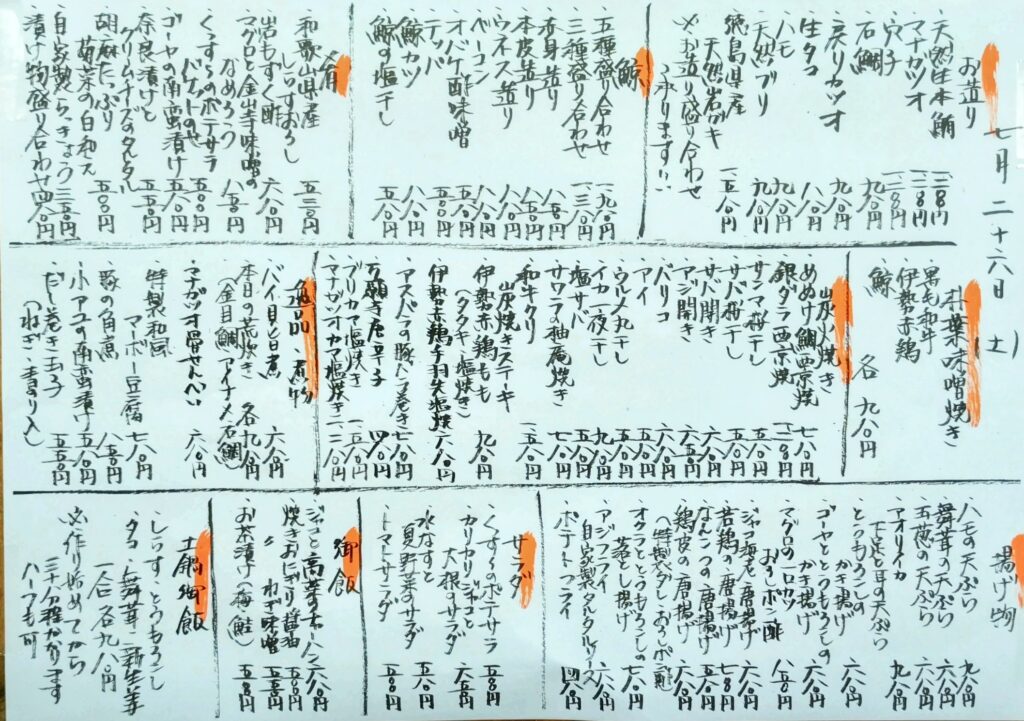 七月二十六日(土)
お造り
天然生本鮪
マナガツオ
穴子
石鯛 九八〇円
戻りカツオ 九八〇円
生タコ 八八〇円
ハモ 九八〇円
天然ブリ 九八〇円
徳島県産
天然岩ガキ 一五八〇円
※お造り盛り合わせ
承ります!!
鯨
五種盛り合わせ
三種盛り合わせ
赤身造り
本皮造り
ウネス造り
ベーコン
オバケ酢味噌
テッパ
鯨カツ
鯨の塩干し
肴
和歌山県産
しらすおろし
岩もずく酢 六八〇円
マグロと金山寺味噌の
なめろう 八五〇円
くずし冷のポテサラ
バケットのせ
ゴーヤの南蛮漬け 五八〇円
奈良漬けと
クリームチーズのタルタル 五五〇円
胡麻たっぷり
菊菜の白和え 五五〇円
自家製らっきょう 三五〇円
漬け物盛り合わせ 四八〇円
朴葉味噌焼き
黒毛和牛
伊勢赤鶏
鯨
各 九八〇円
炭火焼き
めぬけ鯛西京焼 七八〇円
銀ダラ西京焼
サンマ桜干し
サバ桜干し
サバ開き
アジ開き
バリコ
アイ
ウルメ丸干し
イカ一夜干し
塩サバ
サワラ柚庵焼き
和牛クリ
炭焼きステーキ 一五八〇円
伊勢赤鶏もも
(タタキ・塩焼き) 九八〇円
伊勢赤鶏手羽先塩焼 六八〇円
アスパラの豚バラ巻き 七八〇円
万願寺唐辛子
ブリカマ塩焼き
マナガツオカマ塩焼き
逸品・煮物
バイ貝旨煮 六八〇円
本日の荒炊き 各九八〇円
(金目鯛・アイナメ・石鯛)
マナガツオ骨せんべい 六八〇円
特製和風
マーボー豆腐 七八〇円
豚の角煮 八五〇円
小アユの南蛮漬け 五八〇円
だし巻き玉子 五五〇円
(ねぎ・青のり入)
揚げ物
ハモの天ぷら 九八〇円
舞茸の天ぷら 六八〇円
五穂の天ぷら 六八〇円
下足と耳の天ぷら
アオリイカ 九八〇円
とうもろこしの
かき揚げ 六八〇円
ゴーヤととうもろこしの
かき揚げ 六八〇円
マグロの一口カツ
おろしポン酢 八五〇円
ジャコ海老唐揚げ 六八〇円
若鶏の唐揚げ 七八〇円
なんこつの唐揚げ
鶏皮の唐揚げ
(特製ダレ・おろしポン酢)
オクラととうもろこしの
落とし揚げ 七八〇円
アジフライ
自家製タルタルソース 六八〇円
ポテトフライ 四八〇円
サラダ
くずし冷のポテサラ 五五〇円
カリカリじゃこと
大根のサラダ 六五〇円
水なすと
夏野菜のサラダ 五八〇円
トマトサラダ 五五〇円
御飯
ジャコと高菜のチャーハン 六八〇円
焼きおにぎり醤油 五五〇円
〃 ねぎ味噌 五五〇円
お茶漬け(梅・鮭) 五五〇円
土鍋御飯
しらす・とうもろこし
タコ・舞茸・新生姜
一合 各九八〇円
※作り始めてから
三十分程かかります
ハーフも可